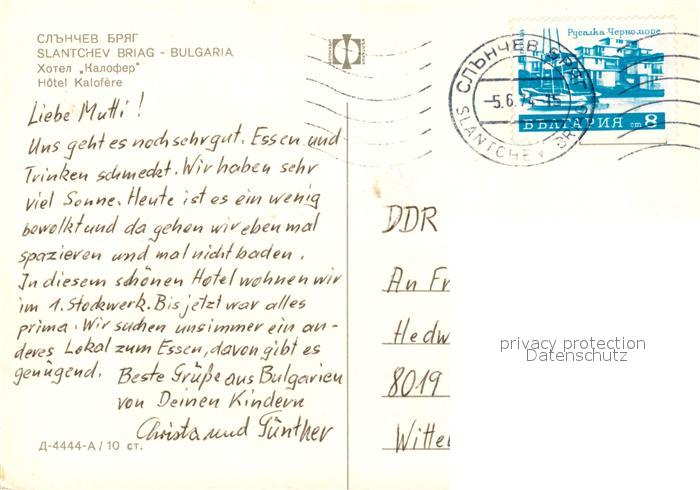 СЛЪНЧЕВ БРЯГ
SLANTCHEV BRIAG - BULGARIA
Хотел „Калофер"
Hôtel Kalofère
Liebe Mutti!
Uns geht es noch sehr gut. Essen und
Trinken schmeckt. Wir haben sehr
viel Sonne. Heute ist es ein wenig
bewölkt und da gehen wir eben mal
spazieren und mal nicht baden.
In diesem schönen Hotel wohnen wir
im 1. Stockwerk. Bis jetzt war alles
prima. Wir suchen uns immer ein an-
deres Lokal zum Essen, davon gibt es
genügend. Beste Grüße aus Bulgarien
von Deinen Kindern
Christa und Günther
Д-4444-А / 10 ст.
Русалка Черноморе
БЪЛГАРИЯ ст 8
СЛЪНЧЕВ БРЯГ
SLANTCHEV BRIAG
DDR
An Fr
Hedw
8019
Witte
privacy protection
Datenschutz